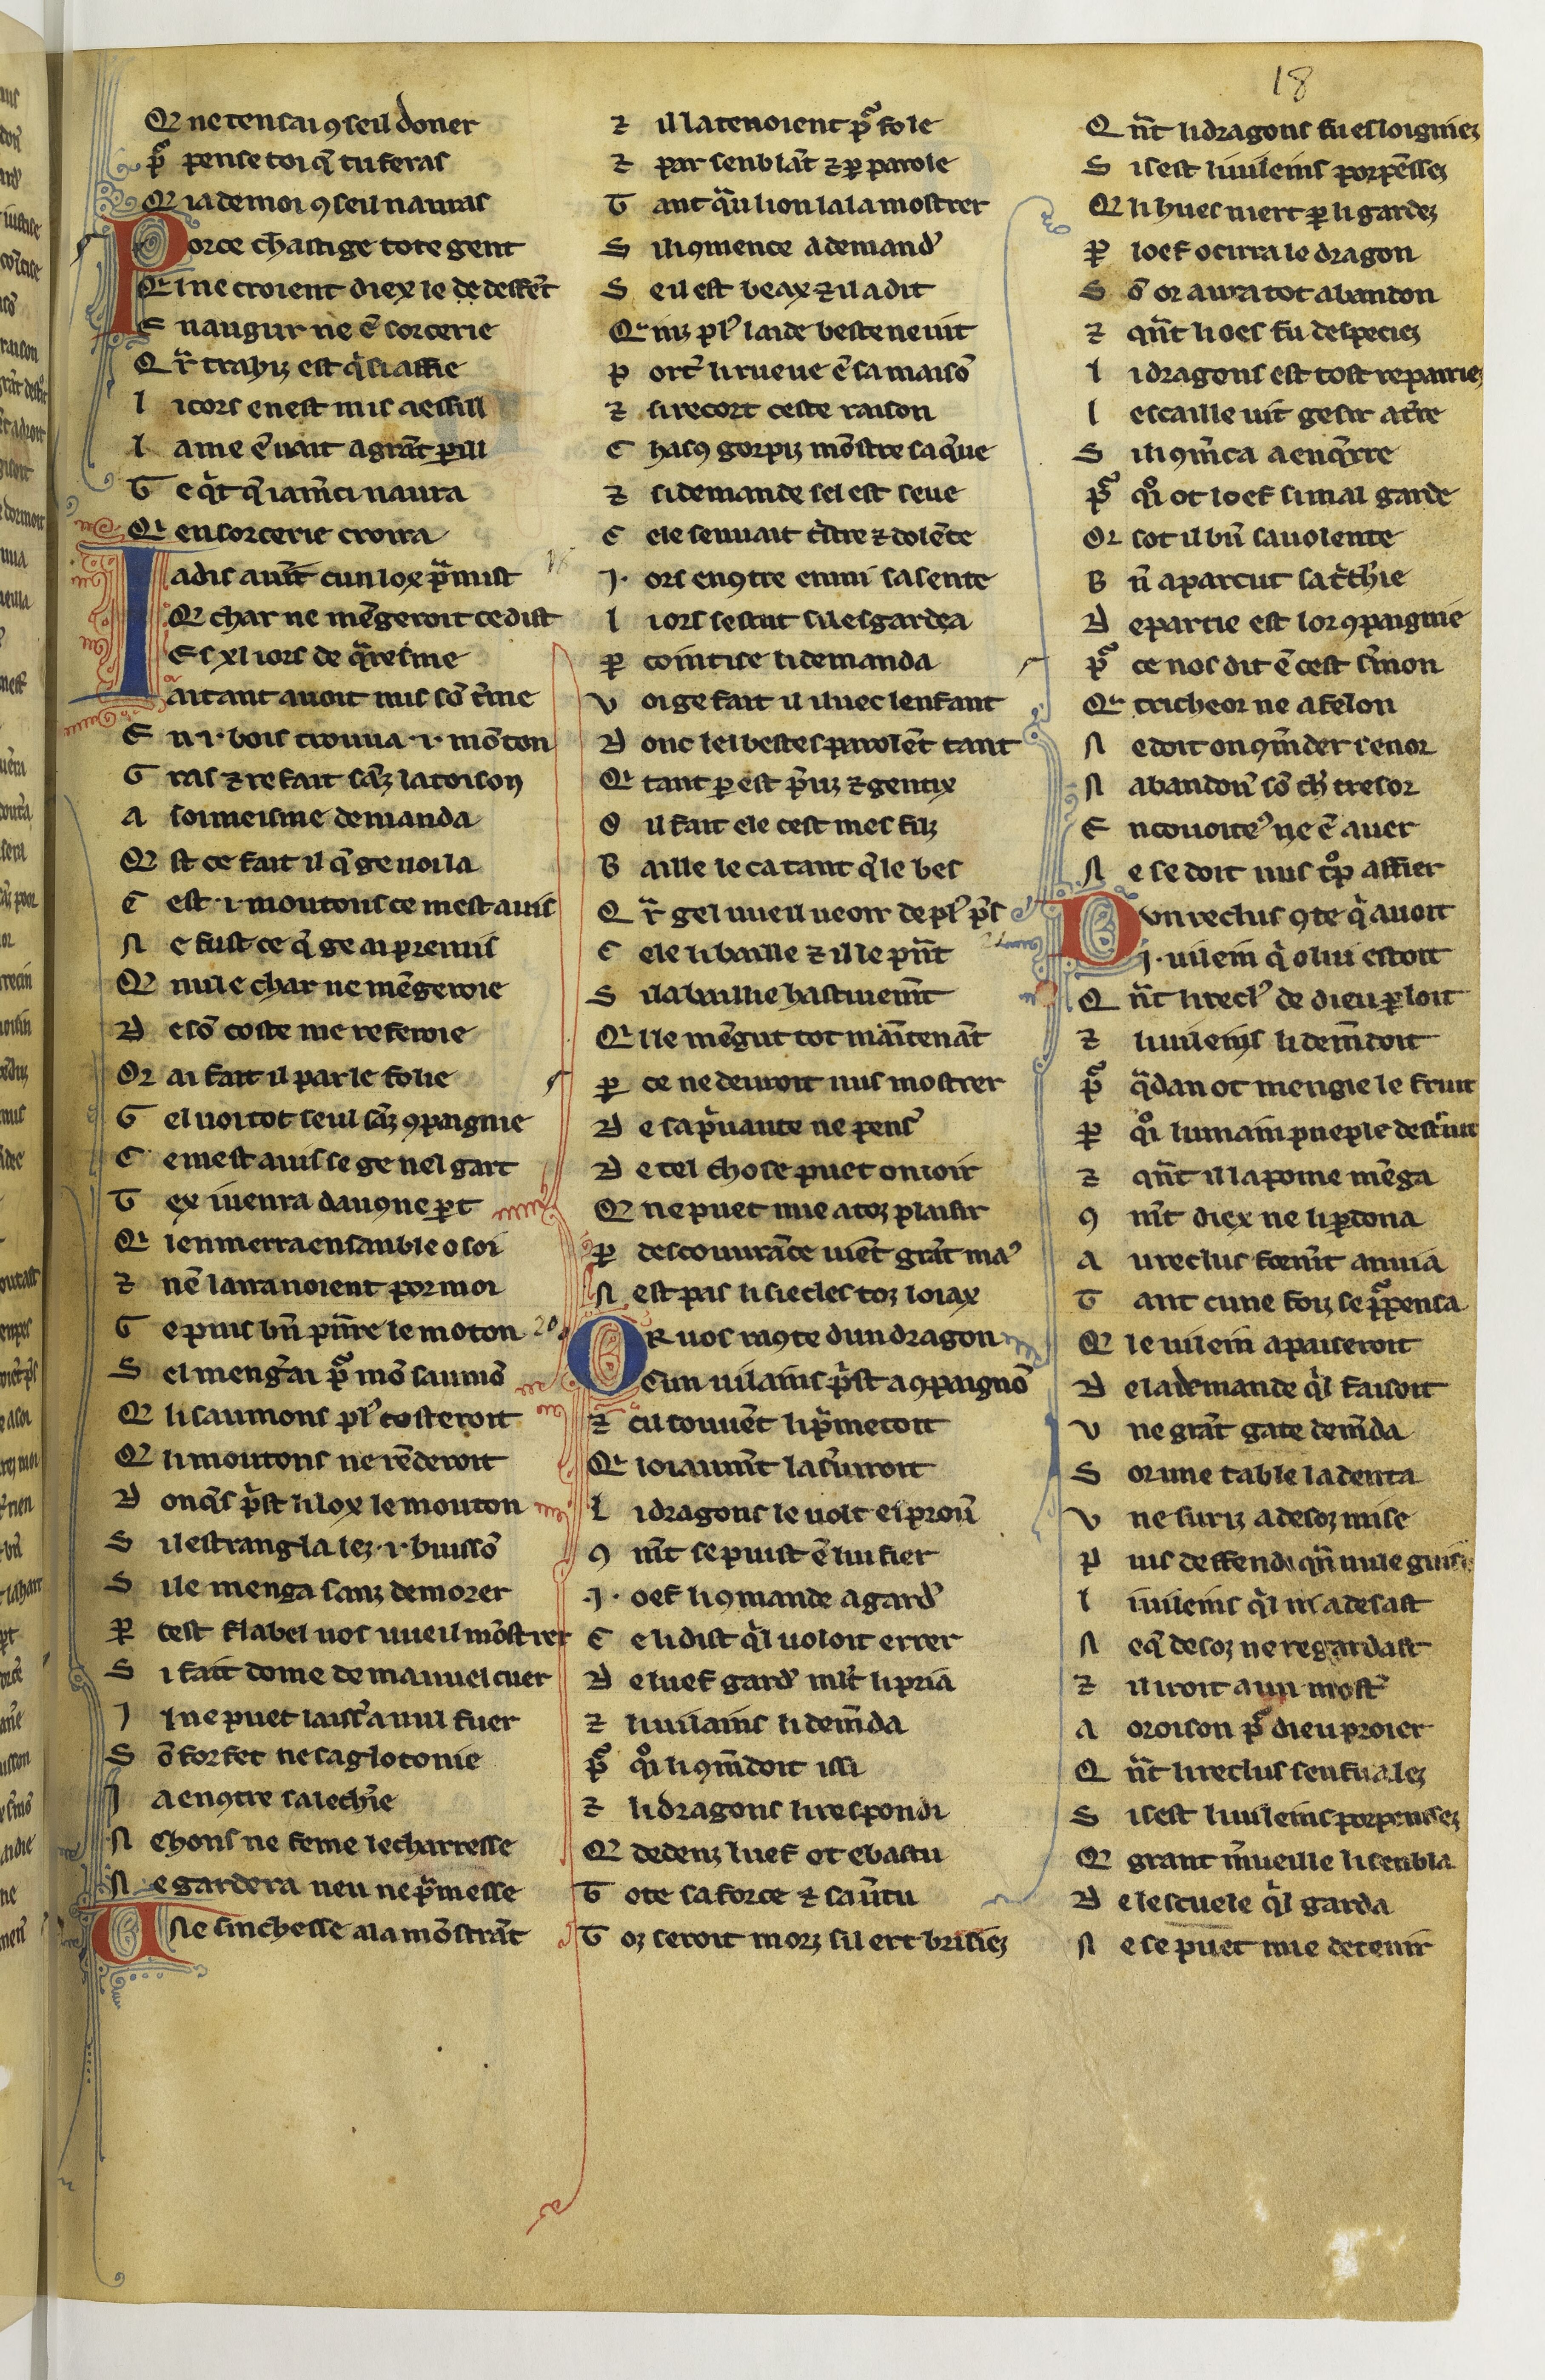 18
Q ne ten sai ꝯseil doner
p̄ pense toi q̄ tu feras
Q ia de moi ꝯseil nauras
Por ce chastige tote gent
Q i ne croient diex le de deffēt
E n augur ne ē sorcerie
Q r trahiz est q̍ si affie
L i cors en est mis a essill
L ame ē uait a grāt ꝑill
G e q̍t q̄ iam̄ ci naura
Q en sorcerie croira
Iadis auīt cun lox ꝓmist
Q char ne mēgeroit ce dist
Es xl iors de q̄resme
A itant auoit mis sō t̄me
E n ·i· bois trouua ·i· mōton
G ras ⁊ refait sāz la toison
A soi meisme demanda
Q st ce fait il q̄ ge uoi la
C est ·i· moutons ce mest auis
N e fust ce q̄ ge ai premis
Q nule char ne mēgeroie
D e sō coste me referoie
Or ai fait il parle folie
G el uoi tot seul sāz ꝯpaignie
C e mest auis se ge nel gart
T ex i uenra dauꝯ ne ꝑt
Q i enmerra ensanble o soi
⁊ nē lairanoient por moi
G e puis bn̄ pn̄re le moton
S el menḡai p̄ mō saumō
Q li saumons pl̄ costeroit
Q li moutons ne rēderoit
D onq̄s p̍st li lox le mouton
S il estrangla lez ·i· buissō
S i le menga sanz demorer
P cest flabel uos uueil mōstrer
S i fait dome de mauuel cuer
I l ne puet laiss̄ a nul fuer
S ō forfet ne sa glotonie
I a enꝯtre sa lecherie
N e hons ne feme lecharresse
N e gardera ueu ne ꝓmesse
Une sinchesse a la mōstrāt
⁊ il la tenoient p̄ fole
⁊ par senblāt ⁊ ꝑ parole
T ant q̄ un lion lala mostrer
S i li ꝯmence a demand̄
S e il est beax ⁊ il a dit
Q niz pl̄ laide beste ne uit
P ort̄ li rueue ē sa maisō
⁊ si recort ceste raison
C hasꝯ gorpiz mōstre sa q̄ue
⁊ si demande sel est seue
C ele senuait t̍stre ⁊ dolēte
I· ors enꝯtre enmi sa sente
L i ors sestut si lesgarda
P cointise li demanda
V oi ge fait il iluec lenfant
D onc les bestes parolēt tant
Q tant ꝑ est p̄uz ⁊ gentix
O il fait ele cest mes filz
B aille le ca tant q̄ le bes
Q r gel uueil ueoir de pl̄ p̄s
C ele li baille ⁊ il le pn̄t
S i la baillie hastiuemīt
Q i le mēgut tot maītenāt
P ce ne deuroit nus mostrer
D e sa p̍uaute ne pens̄
D e tel chose puet on ioir
Q ne puet mie a toz plaisir
P descouurāce uiēt grāt ma᾽
N est pas li siecles toz loiax
Or uos raꝯte dun dragon
Q cun uilains p̍st a ꝯpaignō
⁊ cil souuēt li ꝓmetoit
Q loiaumīt la s̄uiroit
L i dragons le uolt esprou᾽
ꝯ mīt se puist ē lui fier
I· oef li ꝯmande a gard̄
C e li dist q̍l uoloit errer
D e luef gard̄ ml̄t li pria
⁊ li uilains li demāda
p̄ q̊i li ꝯm̄doit issi
⁊ li dragons li respondi
Q dedenz luef ot ebastu
T ote sa force ⁊ sa u̍tu
T oz seroit morz sil ert brisiez
Q nt̄ li dragons fu esloigniez
S i sest li uileins porpēssez
Q li hues niert ꝑ li gardez
P loef ocirra le dragon
S ō or aura tot abandon
⁊ qn̄t li oes fu despeciez
L i dragons est tost repairiez
L escaille uit gesir a t̄re
S i li ꝯm̄ca a enq̄rre
p̄ q̊i ot loef si mal garde
Or sot il bn̄ sa uolente
B n̄ aparcut sa t̍cherie
D epartie est lor ꝯpaignie
p̄ ce nos dit ē cest s̄mon
Q tricheor ne a felon
N e doit on ꝯm̄der senor
N abandon̄ sō ch̄ tresor
E n couoite᾽ ne ē auer
N e se doit nus t̊p affier
Dun reclus ꝯte q̍ auoit
I· uilein q̍ o lui estoit
Q nt̄ li recl᾽ de dieu ꝑloit
⁊ li uileins li dem̄doit
p̄ q̍ dan ot mengie le fruit
P q̊i lumain pueple destruit
⁊ qn̄t il la pome mēga
ꝯ mt̄ diex ne li ꝑdona
A u reclus form̄t annia
T ant cune foiz se p̄pensa
Q le uilein apaiseroit
D e la demande q̍l faisoit
V ne grāt gate dem̄da
S or une table la denta
V ne suriz a desoz mise
P uis deffendi qn̄ nule guise
L i uileins q̍l ni adesast
N e q̄ desoz ne regardast
⁊ il iroit a un most̄
A oroison p̄ dieu proier
Q nt̄ li reclus sen fu alez
S i sest li uileins porpenssez
Q grant m̄ueille li senbla
D e lescuele q̍l garda
N e se puet mie detenir